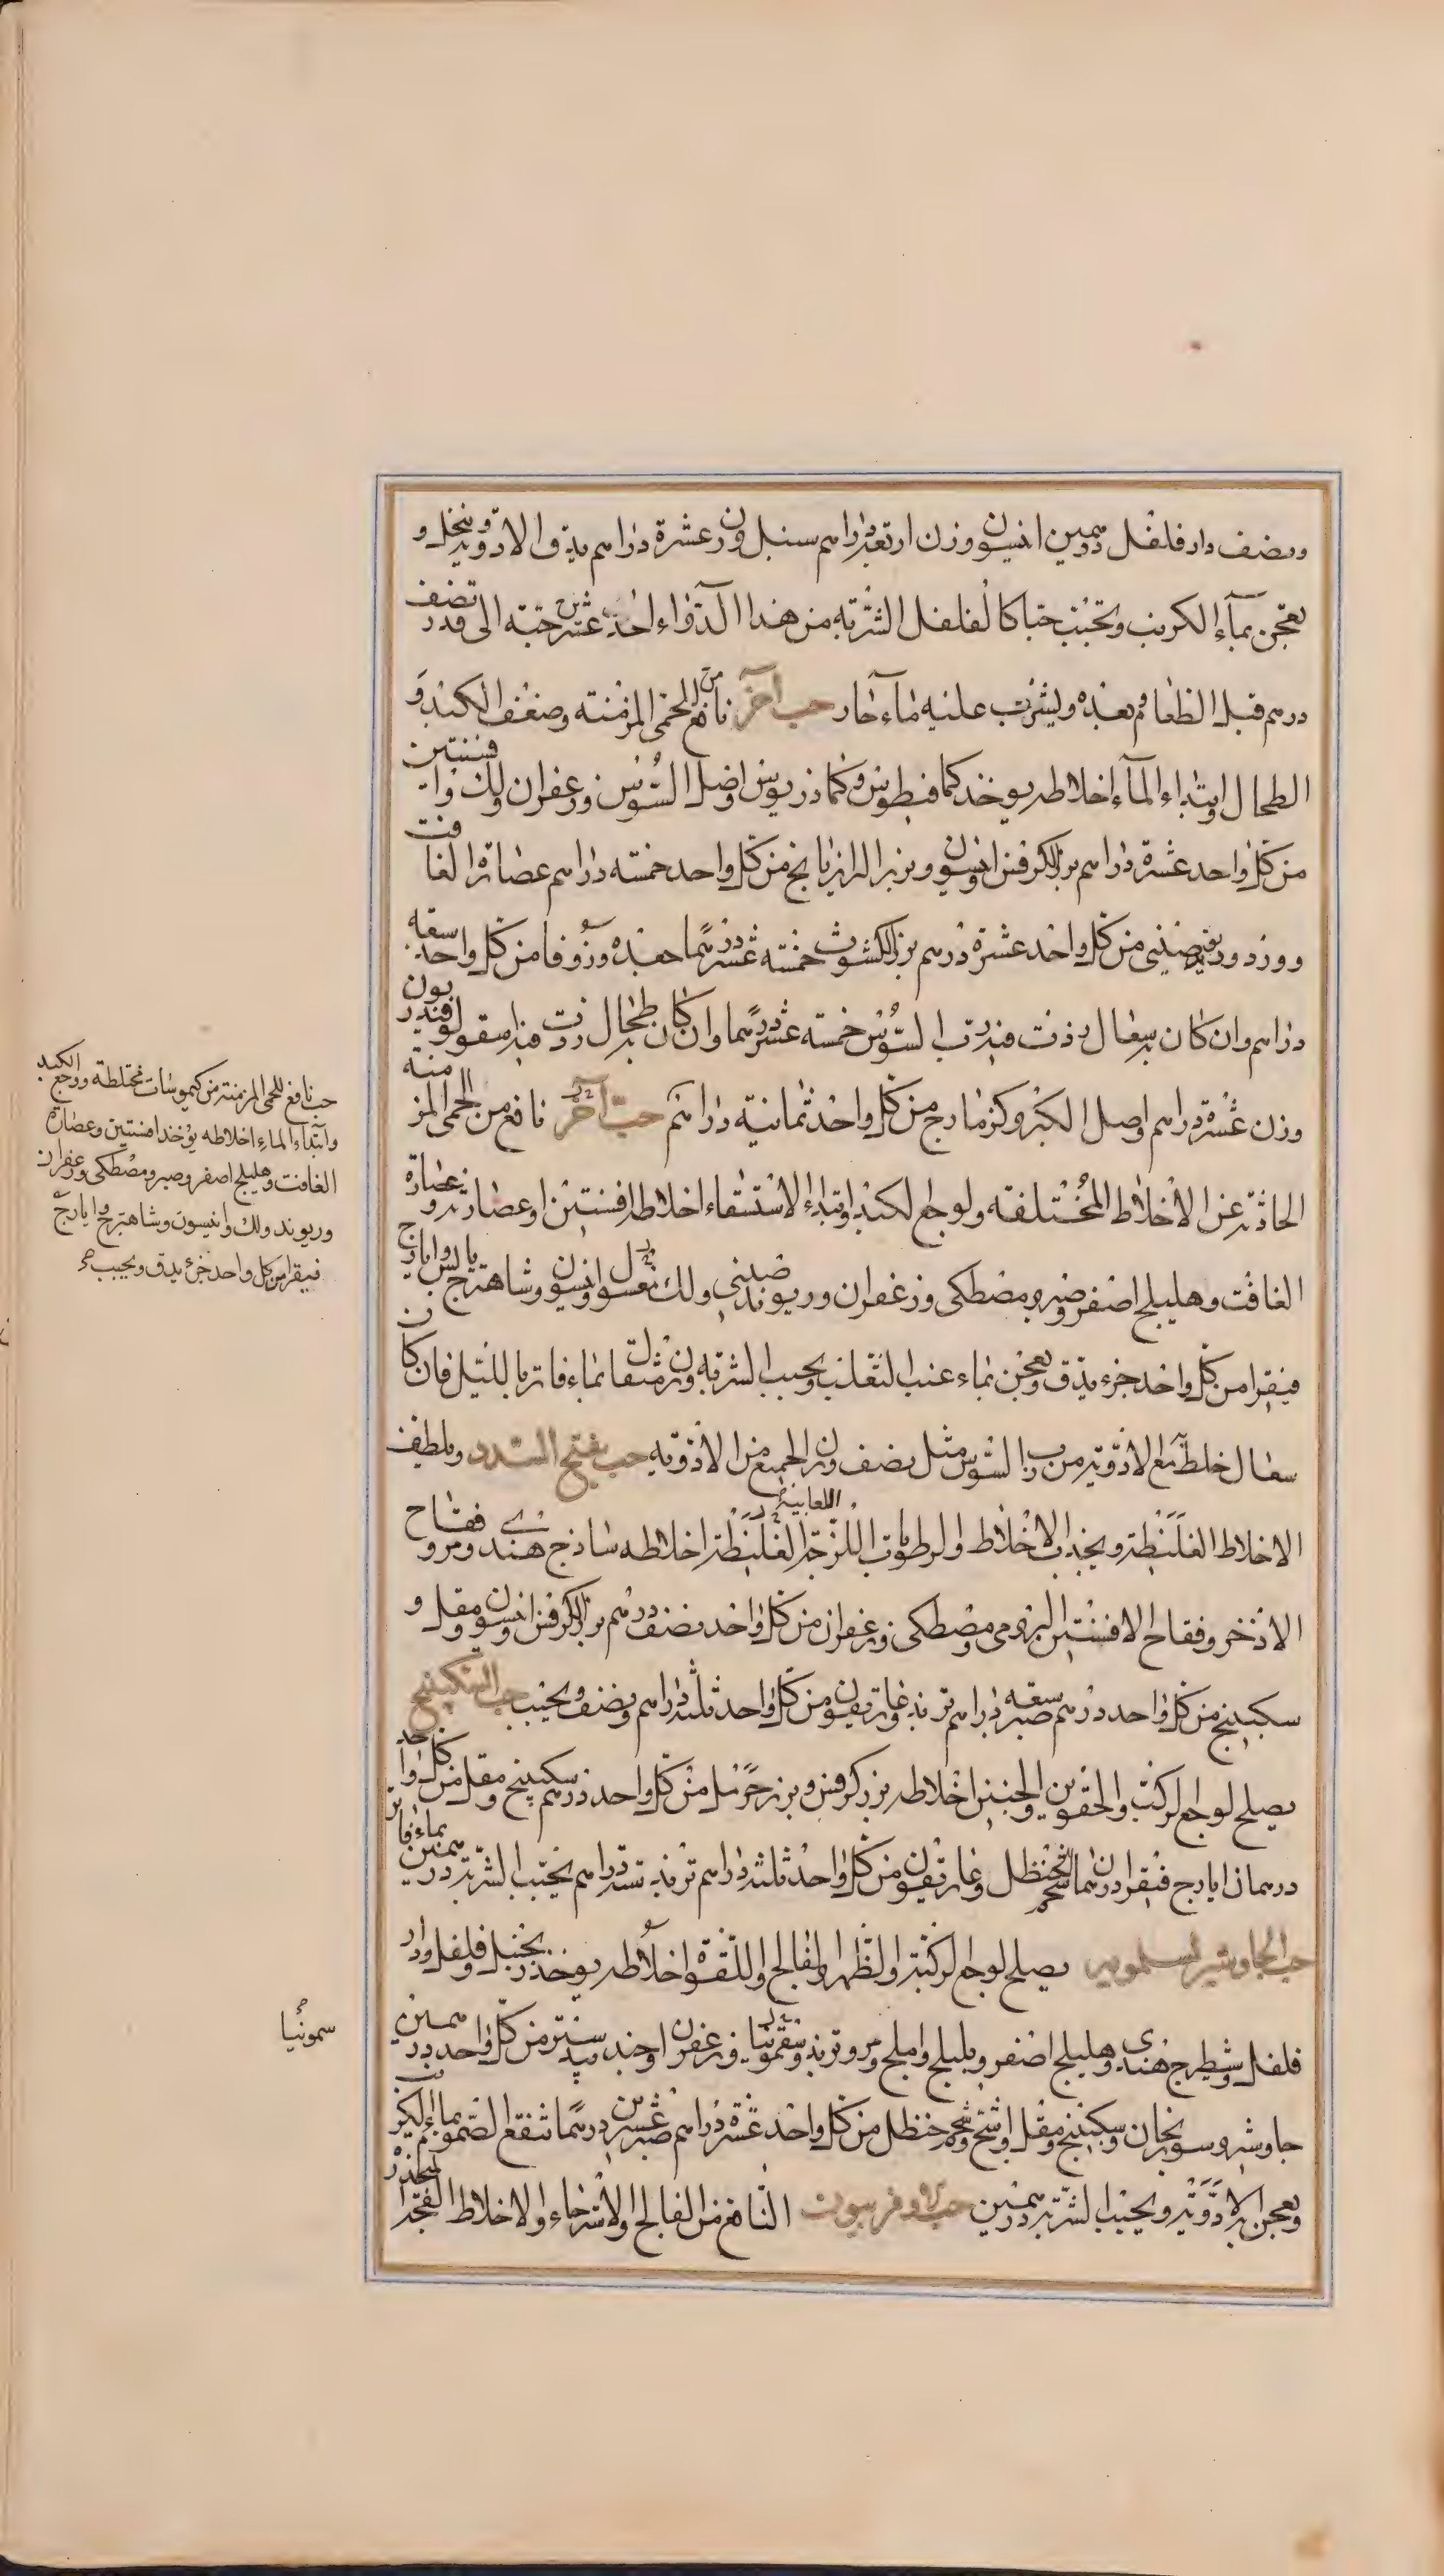 ونصف دارفلفل درهمين انيسون وزن اربعة دراهم سنبل وزن عشرة دراهم يدق الادوية وينخل و
يعجن بماء الكرنب ويحبب حبا كالفلفل الشربة من هذا الدواء احد عشر حبة الى قدر نصف
درهم قبل الطعام وبعده ويشرب عليه ماء حار حب آخر نافع من الحمى المزمنة وضعف الكبد و
الطحال وابتداء الماء اخلاطه يوخذ كمافيطوس وكماذريوس واصل السوس وزعفران ولك وافسنتين
من كل واحد عشرة دراهم بزر الكرفس وانيسون وبزر الرازيانج من كل واحد خمسة دراهم عصارة الغافت
وورد وريوند صيني من كل واحد عشرة درهم بزر الكشوث خمسة عشر درهما جعدة وزوفا من كل واحد سبعة
دراهم وان كان به سعال زدت فيه رب السوس خمسة عشر درهما وان كان به طحال زدت فيه اسقولوقندريون
وزن عشرة دراهم واصل الكبر وكزمازج من كل واحد ثمانية دراهم حب آخر نافع من الحمى المزمنة
الحادثة عن الاخلاط المختلفة ولوجع الكبد وابتداء الاستسقاء اخلاطه افسنتين وعصارته وعصارة
الغافت وهليلج اصفر وصبر ومصطكى وزعفران وريوند صيني ولك مغسول وانيسون وشاهترج يابس وايارج
فيقرا من كل واحد جزء يدق ويعجن بماء عنب الثعلب ويحبب الشربة وزن مثقال بماء فاتر بالليل فان كان
سعال خلط مع الادوية من رب السوس مثل نصف وزن الجميع من الادوية حب يفتح السدد ويلطف
الاخلاط الغليظة ويجذب الاخلاط والرطوبات اللزجة اللعابية الغليظة اخلاطه ساذج هندي ومرو فقاح
الاذخر وفقاح الافسنتين الرومي ومصطكى وزعفران من كل واحد نصف درهم بزر الكرفس وانيسون ومقل و
سكبينج من كل واحد درهم صبر سبعة دراهم تربد وغاريقون من كل واحد ثلثة دراهم ونصف ويحبب حب السكبينج
يصلح لوجع الركب والحقوين والجنبين اخلاطه بزر كرفس وبزر حرمل من كل واحد درهم سكبينج ومقل من كل واحد
درهمان ايارج فيقرا درهمان شحم حنظل وغاريقون من كل واحد ثلثة دراهم تربد ستة دراهم يحبب الشربة درهمين بماء فاتر
حب الجاوشير لسلمويه يصلح لوجع الركبة والظهر والفالج واللقوة اخلاطه يوخذ زنجبيل وفلفل ودار
فلفل وشيطرج هندى وهليلج اصفر وبليلج واملج ومرو تربد وسقمونيا وزعفران وجندبيدستر من كل واحد درهمين
جاوشير وسورنجان وسكبينج ومقل واشج وشحم حنظل من كل واحد عشرة دراهم صبر عشرين درهما تنقع الصموغ بماء الكرنب
ويعجن به الادوية ويحبب الشربة درهمين حب الاوفربيون النافع من الفالج والاسترخاء والاخلاط الفجة
حب نافع للحمى المزمنة من كيموسات مختلطة ووجع الكبد
وابتداء الماء اخلاطه يؤخذ افسنتين وعصارة
الغافت وهليلج اصفر وصبر ومصطكى وزعفران
وريوند ولك وانيسون وشاهترج وايارج
فيقرا من كل واحد جزء يدق ويحبب
سمونيا